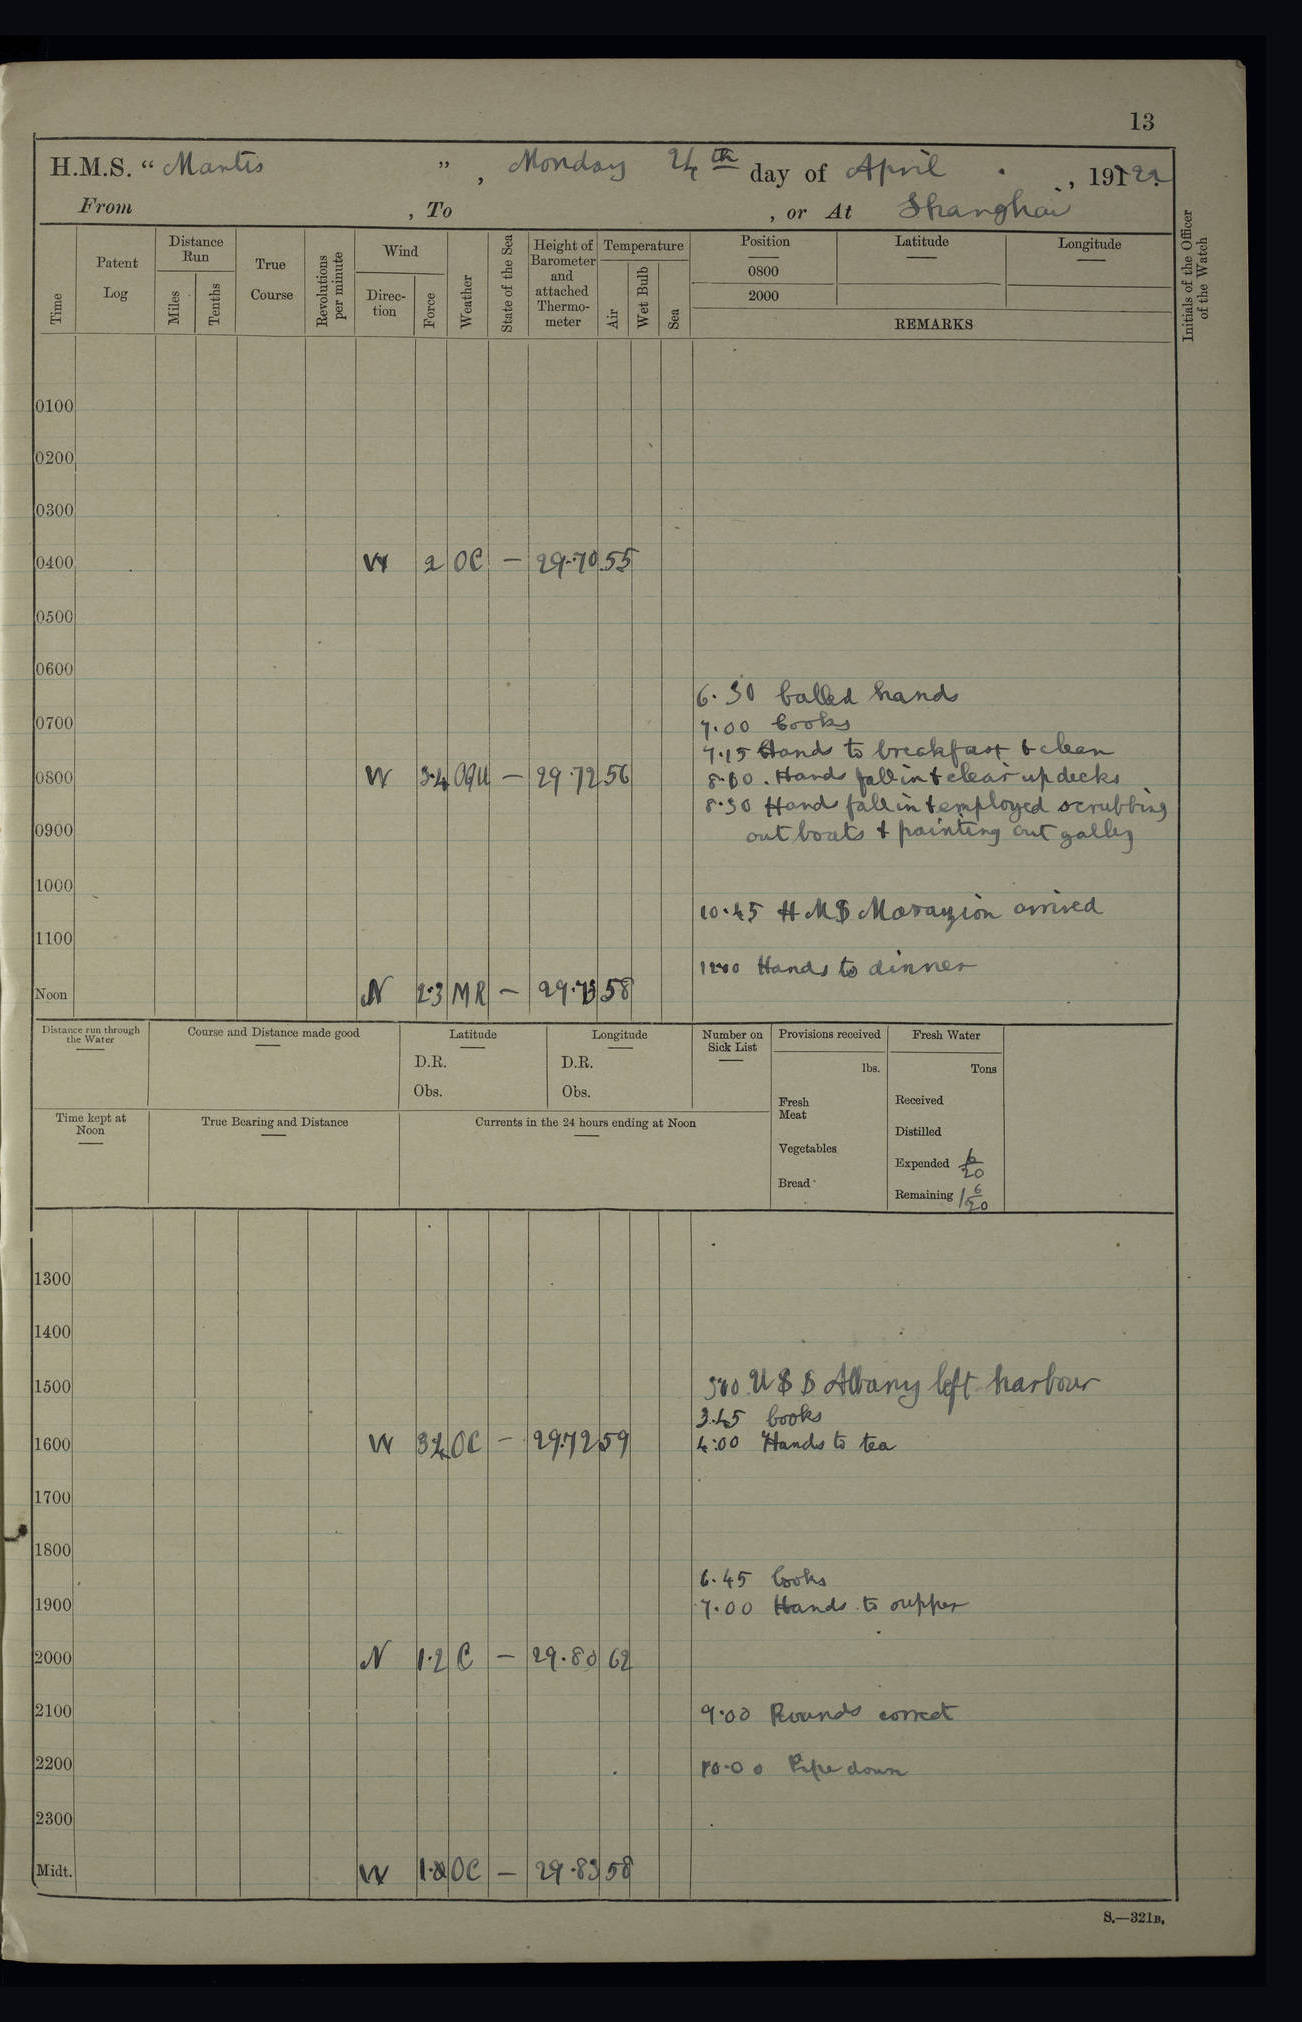 13
H.M.S. “ Mantis ”, Monday 24th day of April, 1922
From , To , or At Shanghai
Time
Patent Log
Distance Run
Miles
Tenths
True Course
Revolutions per minute
Wind
Direction
Force
Weather
State of the Sea
Height of Barometer and attached Thermometer
Temperature
Air
Wet Bulb
Sea
Position
0800
2000
Latitude
Longitude
REMARKS
Initials of the Officer of the Watch
0100
0200
0300
0400 W 2 OC — 29.70 55
0500
0600
6.30 Called hands
0700
7.00 Cooks
7.15 Hands to breakfast & clean
0800 W 3.4 OQU — 29.72 56
8.00 . Hands fall in & clear up decks
8.30 Hands fall in & employed scrubbing
0900
out boats & painting out galley
1000
10.45 H M S Marazion arrived
1100
1200 Hands to dinner
Noon N 2.3 MR — 29.73 58
Distance run through the Water
Course and Distance made good
Latitude
D.R.
Obs.
Longitude
D.R.
Obs.
Number on Sick List
Provisions received
lbs.
Fresh Meat
Vegetables
Bread
Fresh Water
Tons
Received
Distilled
Expended 6/20
Remaining 1 6/20
Time kept at Noon
True Bearing and Distance
Currents in the 24 hours ending at Noon
1300
1400
1500
U S S Albany left harbour
3.45 Cooks
1600 W 3.4 OC — 29.72 59
4.00 Hands to tea
1700
1800
6.45 Cooks
1900
7.00 Hands to supper
2000 N 1.2 C — 29.80 62
2100
9.00 Rounds correct
2200
10.00 Pipe down
2300
Midt. W OC — 29.83 58
S.—321B.